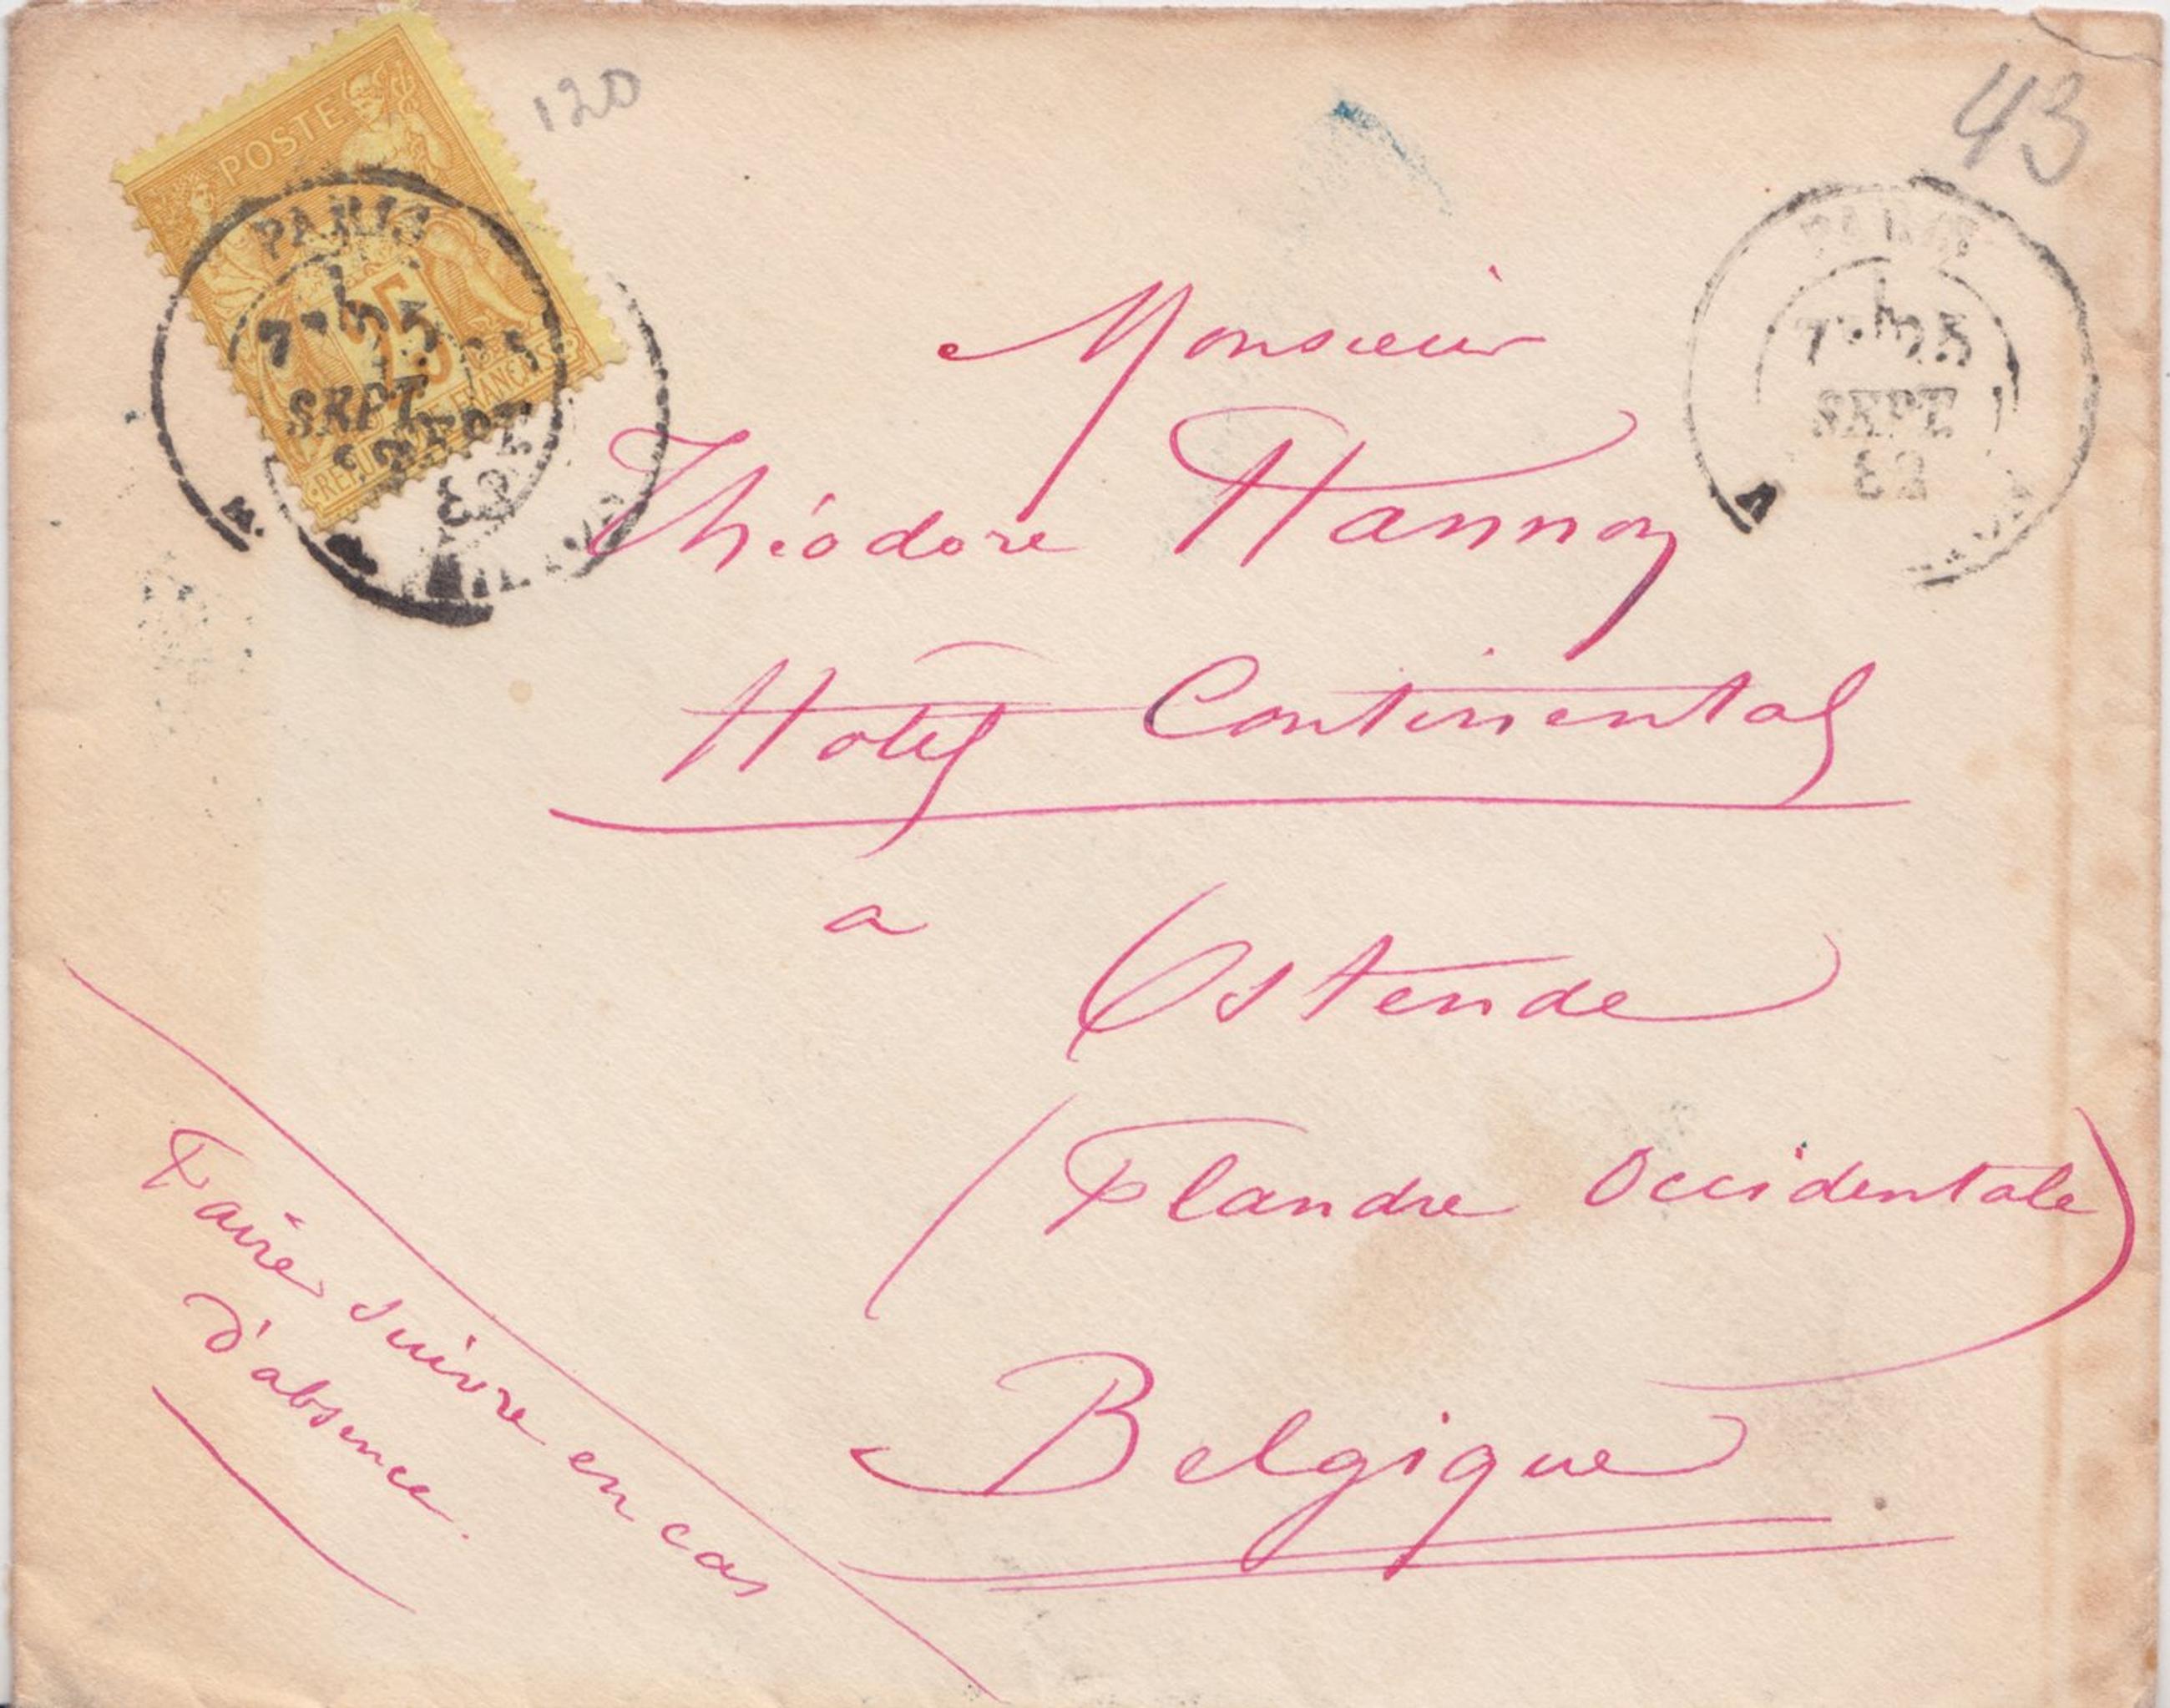 120
43
POSTE
25
PARIS
SEPT
82
PARIS
SEPT.
82
Monsieur
Théodore Hannon
Hotel Continental
a Ostende
(Flandre Occidentale)
Belgique
Faire suivre en cas
d'absence.